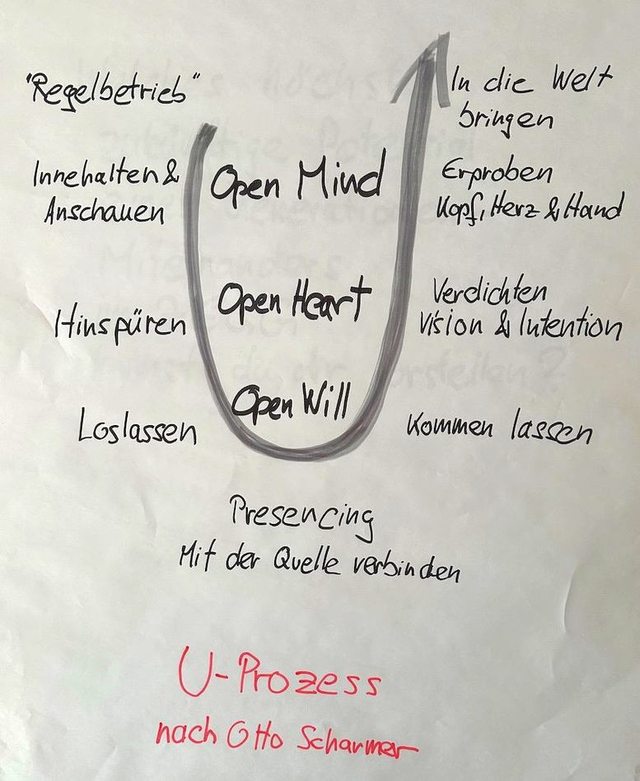 "Regelbetrieb"
Innehalten &
Anschauen
Hinspüren
Loslassen
Open Mind
Open Heart
Open Will
In die Welt
bringen
Erproben
Kopf, Herz & Hand
Verdichten
Vision & Intention
Kommen lassen
Presencing
Mit der Quelle verbinden
U-Prozess
nach Otto Scharmer